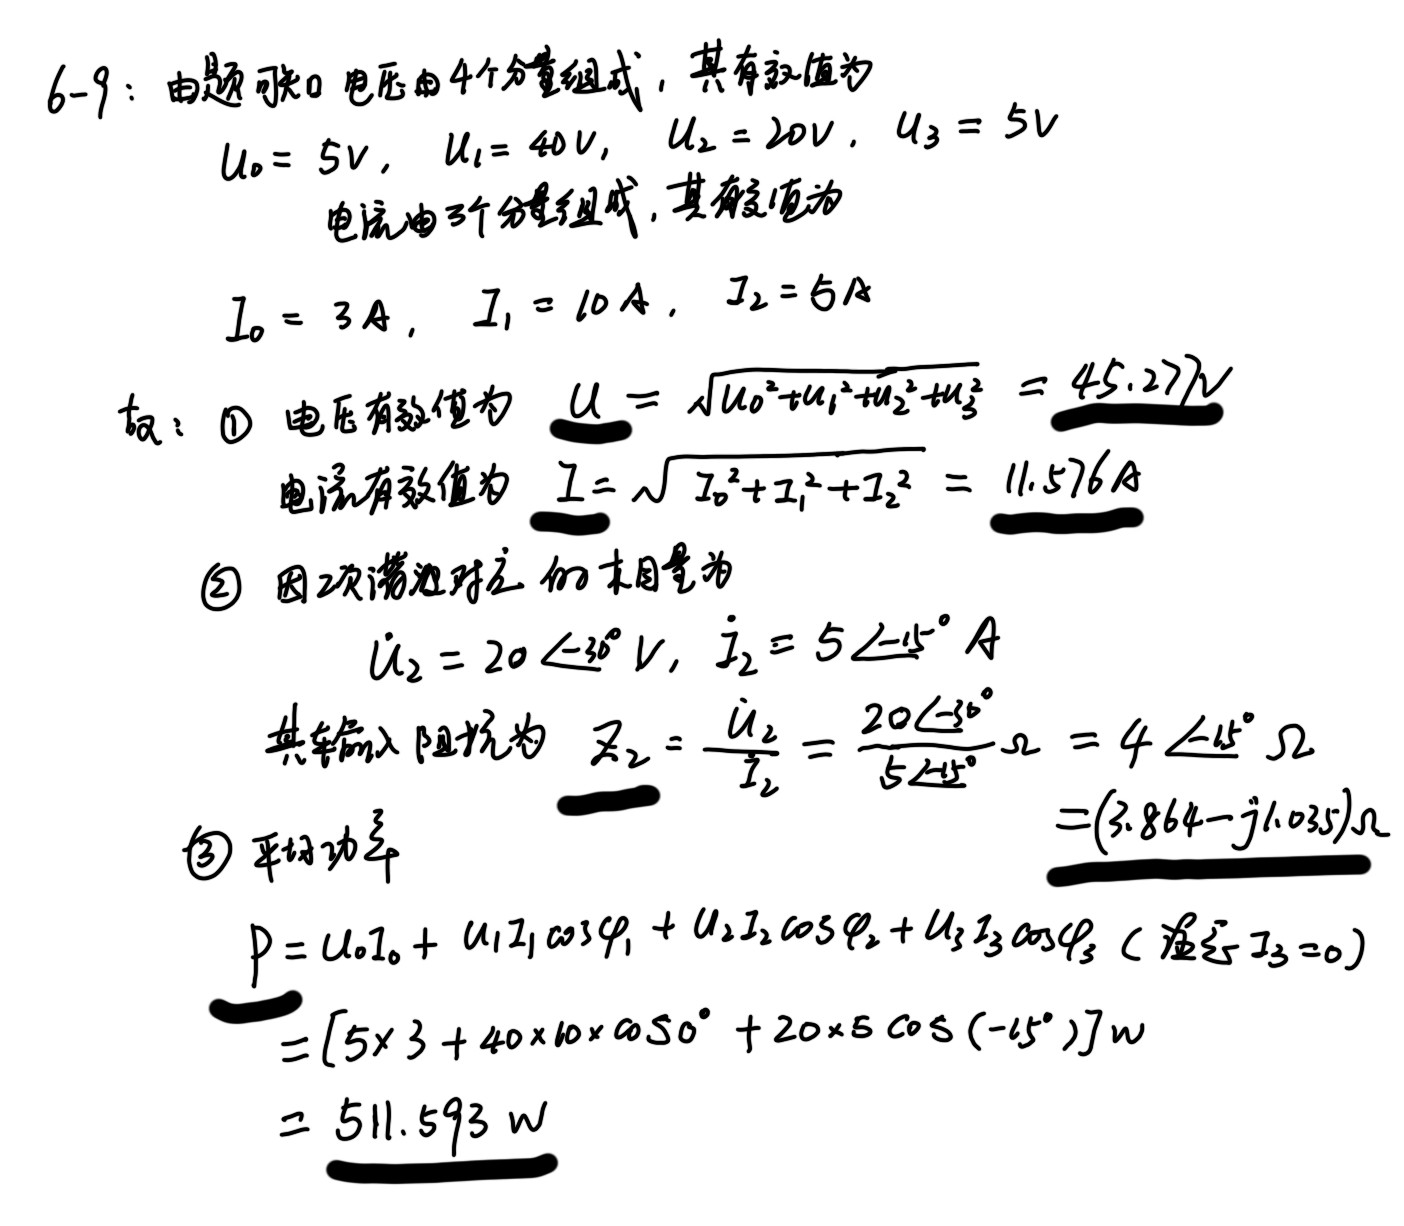 6-9: 由题可知 电压由4个分量组成, 其有效值为
U₀ = 5V, U₁ = 40V, U₂ = 20V, U₃ = 5V
电流由3个分量组成, 其有效值为
I₀ = 3A, I₁ = 10A, I₂ = 5A
故: ① 电压有效值为 U = √(U₀²+U₁²+U₂²+U₃²) = 45.277V
电流有效值为 I = √(I₀²+I₁²+I₂²) = 11.576A
② 因2次谐波对应的相量为
U̇₂ = 20∠-30° V, İ₂ = 5∠-15° A
其输入阻抗为 Z₂ = U̇₂/İ₂ = 20∠-30°/5∠-15° Ω = 4∠-15° Ω
=(3.864-j1.035)Ω
③ 平均功率
P = U₀I₀ + U₁I₁cosφ₁ + U₂I₂cosφ₂ + U₃I₃cosφ₃ ( I₃=0)
= [5×3+40×10×cos0°+20×5cos(-15°)]W
= 511.593 W